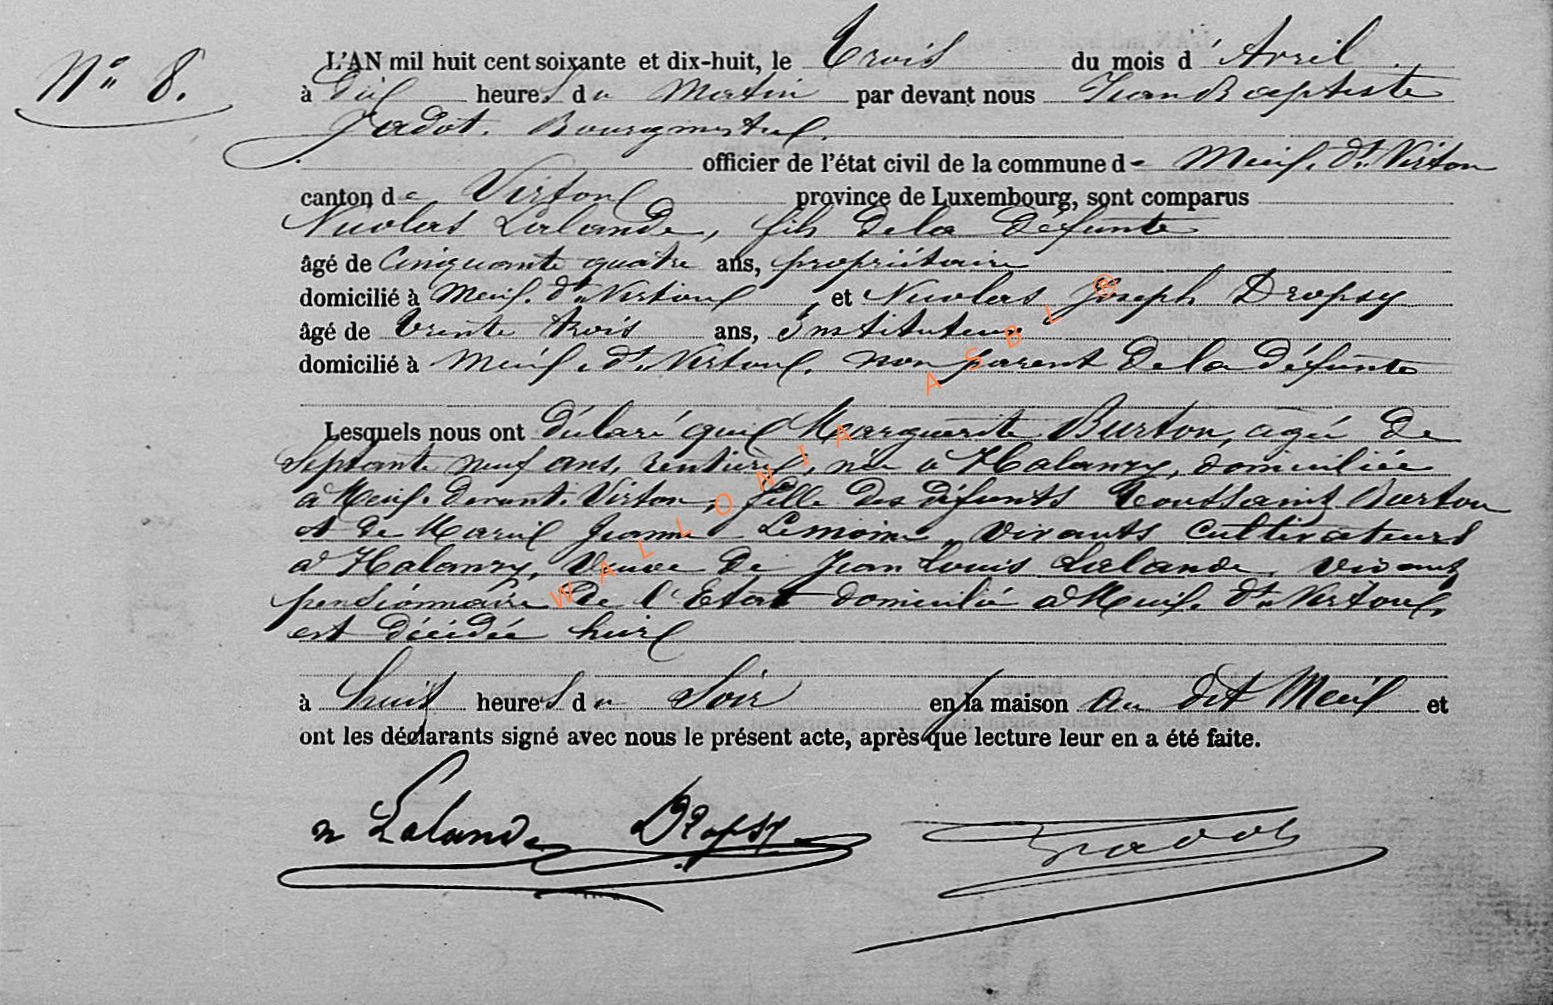 N° 8.
L'AN mil huit cent soixante et dix-huit, le Trois du mois d' Avril
à Dix heures du Matin par devant nous Jean Baptiste
Jadot, Bourgmestre,
officier de l'état civil de la commune de Meix. dt. Virton
canton de Virton province de Luxembourg, sont comparus
Nicolas Lalande, fils de la défunte
âgé de Cinquante quatre ans, propriétaire
domicilié à Meix. dt. Virton, et Nicolas Joseph Dropsy
âgé de Trente trois ans, Instituteur
domicilié à Meix. dt. Virton, non parent de la défunte
Lesquels nous ont déclaré que Marguerite Burton, agée de
Septante neuf ans, rentière, née à Halanzy, domiciliée
à Meix-devant-Virton, fille des défunts Toussaint Burton
et de Marie Jeanne Lemoine, vivants cultivateurs
à Halanzy, Veuve de Jean Louis Lalande, vivant
pensionnaire de l'Etat domicilié à Meix. dt. Virton,
est décédée hier
à huit heures du Soir en sa maison au dit Meix et
ont les déclarants signé avec nous le présent acte, après que lecture leur en a été faite.
n Lalande Dropsy Jadot
WALLONIA ASBL ©